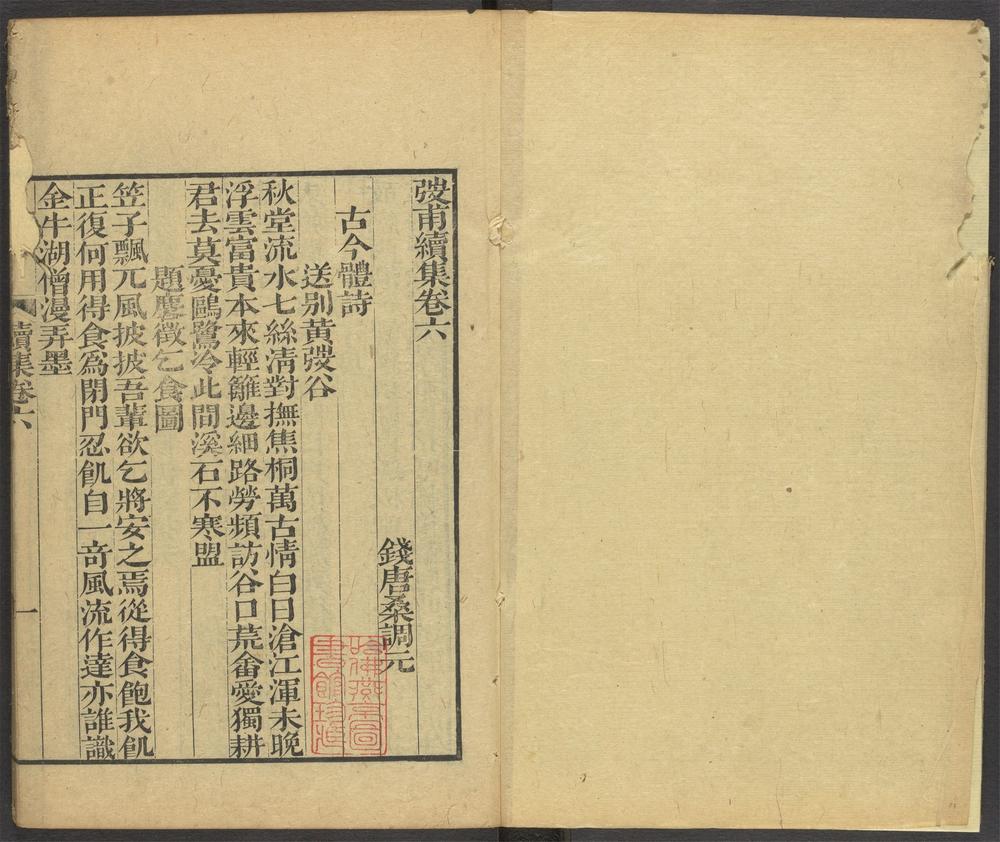 弢甫續集卷六
錢唐桑調元
古今體詩
送别黃弢谷
秋堂流水七絲清對撫焦桐萬古情白日滄江渾未晚
浮雲富貴本來輕籬邊細路勞頻訪谷口荒畬愛獨耕
君去莫憂鷗鷺冷此間溪石不寒盟
題麐徵乞食圖
笠子飄兀風披披吾輩欲乞將安之焉從得食飽我飢
正復何用得食爲閉門忍飢自一奇風流作達亦誰識
金牛湖僧漫弄墨
續集卷六
一